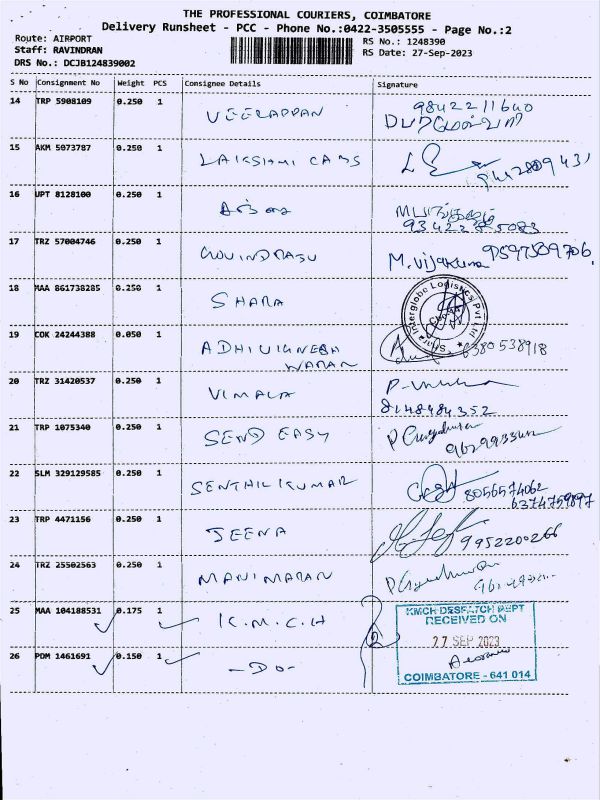 THE PROFESSIONAL COURIERS, COIMBATORE
Delivery Runsheet - PCC - Phone No.:0422-3505555 - Page No.:2
Route: AIRPORT
Staff: RAVINDRAN
DRS No.: DCJB124839002
RS No.: 1248390
RS Date: 27-Sep-2023
S No Consignment No Weight PCS Consignee Details Signature
14 TRP 5908109 0.250 1 VEERAPPAN 9842211640
15 AKM 5073787 0.250 1 LAKSHMI CABS
16 UPT 8128100 0.250 1
17 TRZ 57004746 0.250 1 GOVINDRAJU M.Vijakuma 9597589706
18 MAA 861738285 0.250 1 SHARA Shara Interglobe Logistics Pvt Ltd
19 COK 24244388 0.050 1 ADHIVIGNESH 6380538918
WARAN
20 TRZ 31420537 0.250 1 VIMALA
8148484352
21 TRP 1075340 0.250 1 SEND EASY
22 SLM 329129585 0.250 1 SENTHIL KUMAR 8056574062
6374759897
23 TRP 4471156 0.250 1 JEENA 9952200266
24 TRZ 25502563 0.250 1 MANIMARAN
25 MAA 104188531 0.175 1 K.M.C.H
KMCH DESPATCH DEPT
RECEIVED ON
27 SEP 2023
26 PDM 1461691 0.150 1 -DO-
COIMBATORE - 641 014